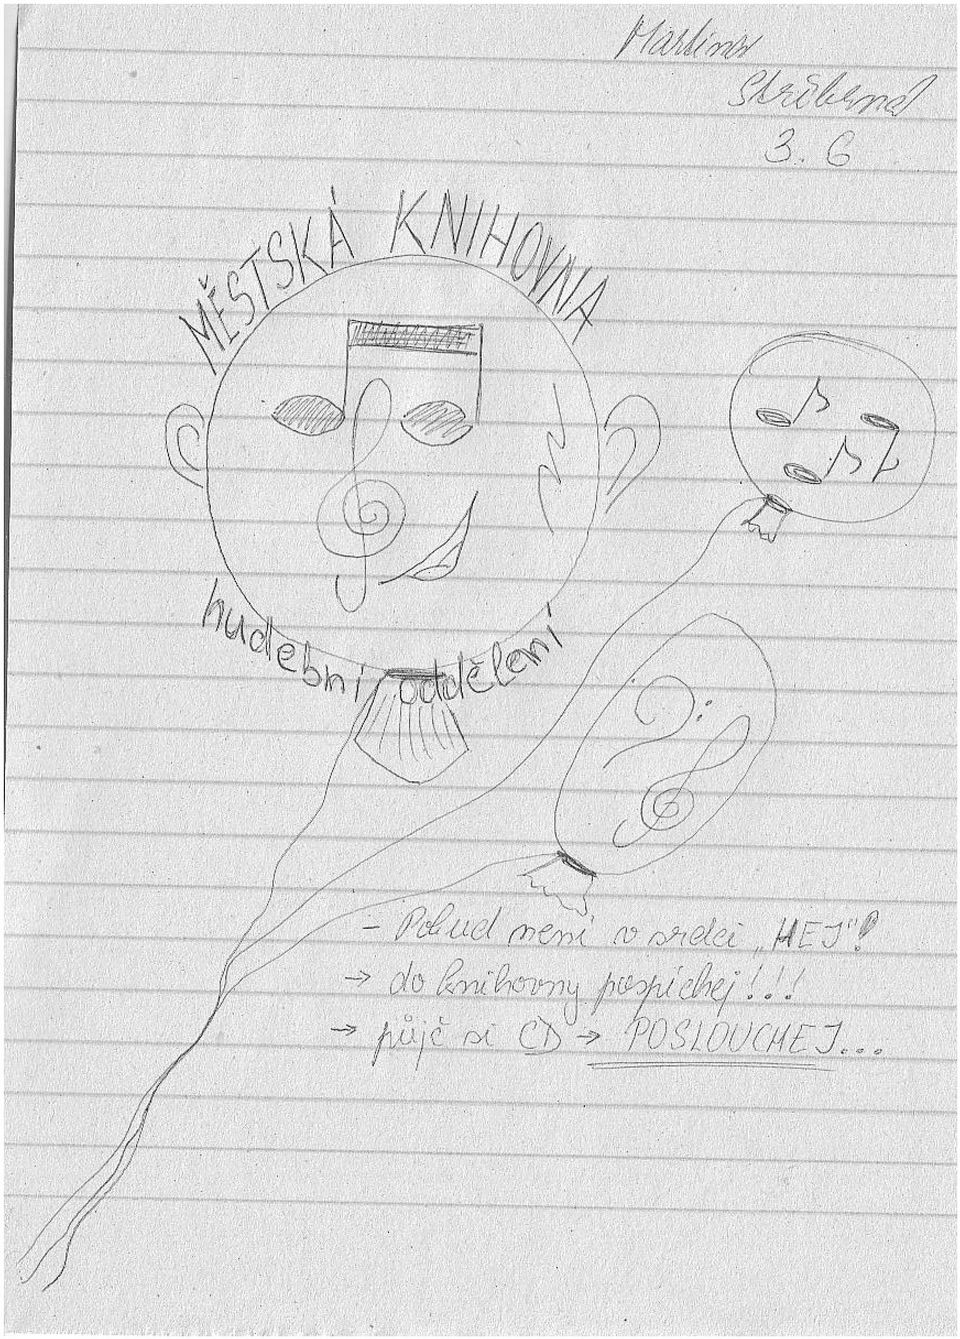 Martina
Stříbrná
3. G
MĚSTSKÁ KNIHOVNA
hudební oddělení
- Pokud není v srdci „HEJ"!
→ do knihovny pospíchej!!!
→ půjč si CD → POSLOUCHEJ...